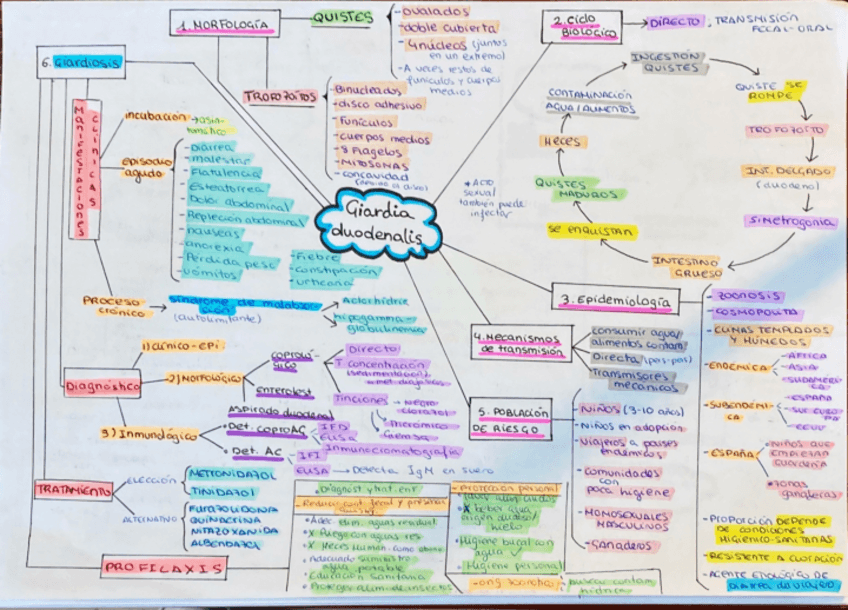 1. MORFOLOGÍA
QUISTES
- ovalados
- doble cubierta
- 4 núcleos (juntos
en un extremo)
- A veces restos de
funículos y cuerpos
medios
TROFOZOÍTOS
- Binucleados
- disco adhesivo
- Funículos
- cuerpos medios
- 8 Flagelos
- MITOSOMAS
- concavidad
Giardia
duodenalis
2. Ciclo
Biológico
DIRECTO: TRANSMISIÓN
FECAL-ORAL
INGESTIÓN
QUISTES
QUISTE SE
ROMPE
TROFOZOÍTO
INT. DELGADO
(duodeno)
INTESTINO
GRUESO
SE ENQUISTAN
QUISTES
MADUROS
HECES
CONTAMINACIÓN
AGUA/ALIMENTOS
* ACTO
sexual
también puede
infectar
3. Epidemiología
- ZOONOSIS
- COSMOPOLITA
- CLIMAS TEMPLADOS
Y HÚMEDOS
- ENDÉMICA
- ÁFRICA
- ASIA
- SUDAMÉRI
CA
- SUBENDÉMI-
CA
- ESPAÑA
- SUR EUROPA
- EEUU
- ESPAÑA
NIÑOS QUE
EMPIEZAN
GUARDERÍA
ZONAS
GANADERAS
- PROPORCIÓN DEPENDE
DE CONDICIONES
HIGIÉNICO-SANITARIAS
- RESISTENTE A CLORACIÓN
- AGENTE ETIOLÓGICO DE
DIARREA DEL VIAJERO
4. Mecanismos
de transmisión
consumir agua/
alimentos contam.
Directa
Transmisores
mecánicos
5. POBLACIÓN
DE RIESGO
- NIÑOS (3-10 años)
- Niños en adopción
- Viajeros a países
endémicos
- Comunidades
con
poca higiene
- HOMOSEXUALES
MASCULINOS
- GANADEROS
6. Giardiosis
Manifestaciones
CLÍNICAS
incubación → asin-
tomático
episodio
agudo
- Diarrea
- malestar
- Flatulencia
- Esteatorrea
- Dolor abdominal
- Repleción abdominal
- náuseas
- anorexia
- Pérdida peso
- vómitos
- Fiebre
- constipación
- urticaria
PROCESO
crónico
síndrome de malabsor-
ción
(autolimitante)
Aclorhidria
hipogamma-
globulinemia
Diagnóstico
1) clínico-epi.
2) MORFOLÓGICO
COPROLÓ-
GICO
Directo
T. concentración
enterotest
ASPIRADO duodenal
Tinciones
Giemsa
3) Inmunológico
Det. coproAG
IFD
ELISA
Inmunocromatografía
Det. AC
IFI
ELISA → Detecta IgM en suero
TRATAMIENTO
ELECCIÓN
METRONIDAZOL
TINIDAZOL
ALTERNATIVO
FURAZOLIDONA
QUINACRINA
NITAZOXANIDA
ALBENDAZOL
PROFILAXIS
Diagnóst y trat. enf
- Adec. elim. aguas residual
- X Riego con aguas res
- X Heces human. como abono
- Adecuado suministro
agua potable
- Educación Sanitaria
- Proteger alim. de insectos
- Protección personal
lavar
X beber agua
origen dudoso/
hielo
- Higiene bucal con
agua ✓
- Higiene personal